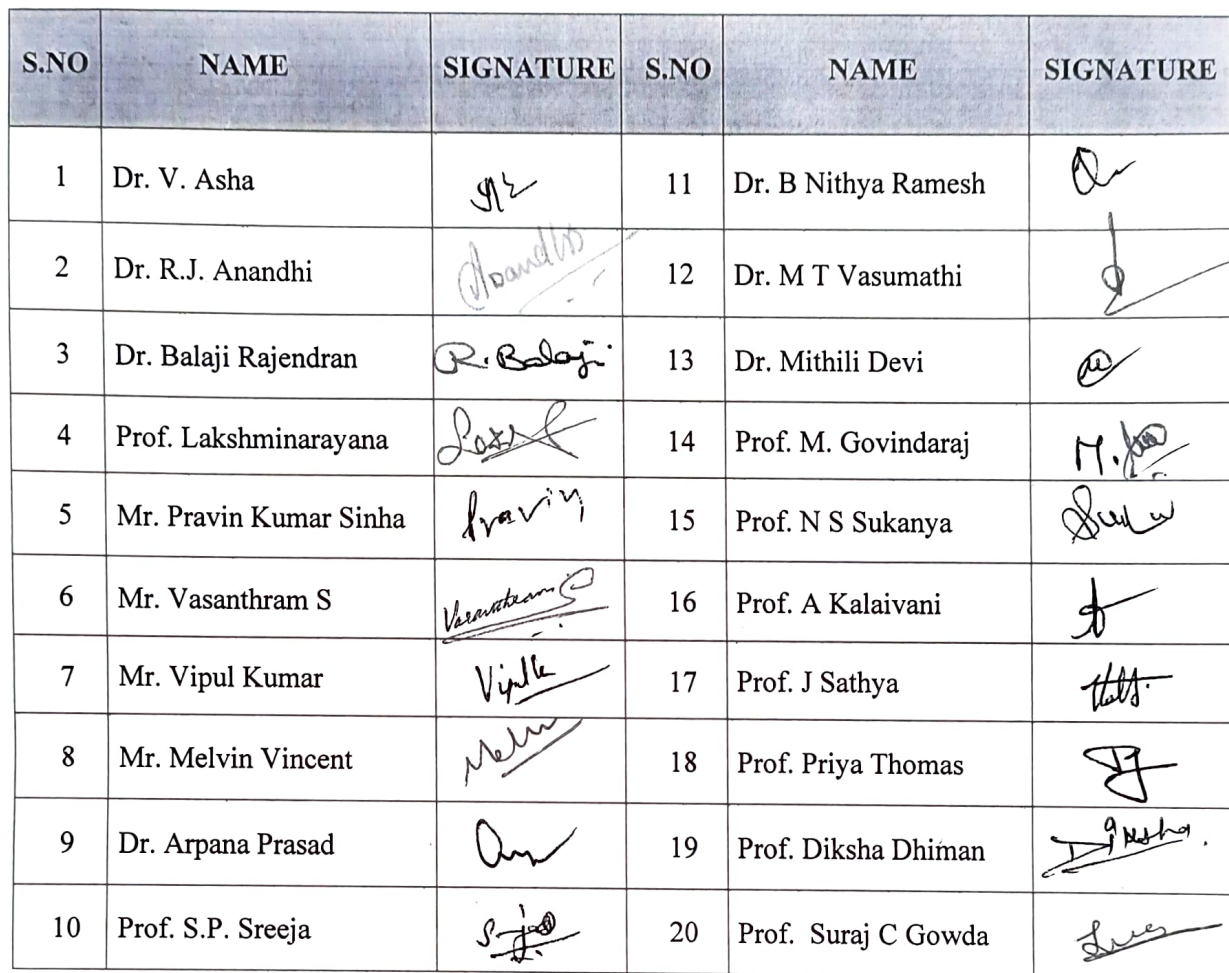 S.NO NAME SIGNATURE S.NO NAME SIGNATURE
1 Dr. V. Asha 11 Dr. B Nithya Ramesh
2 Dr. R.J. Anandhi 12 Dr. M T Vasumathi
3 Dr. Balaji Rajendran R. Balaji 13 Dr. Mithili Devi
4 Prof. Lakshminarayana 14 Prof. M. Govindaraj
5 Mr. Pravin Kumar Sinha Pravin 15 Prof. N S Sukanya
6 Mr. Vasanthram S Vasanthram S 16 Prof. A Kalaivani
7 Mr. Vipul Kumar 17 Prof. J Sathya
8 Mr. Melvin Vincent 18 Prof. Priya Thomas
9 Dr. Arpana Prasad 19 Prof. Diksha Dhiman Diksha
10 Prof. S.P. Sreeja 20 Prof. Suraj C Gowda